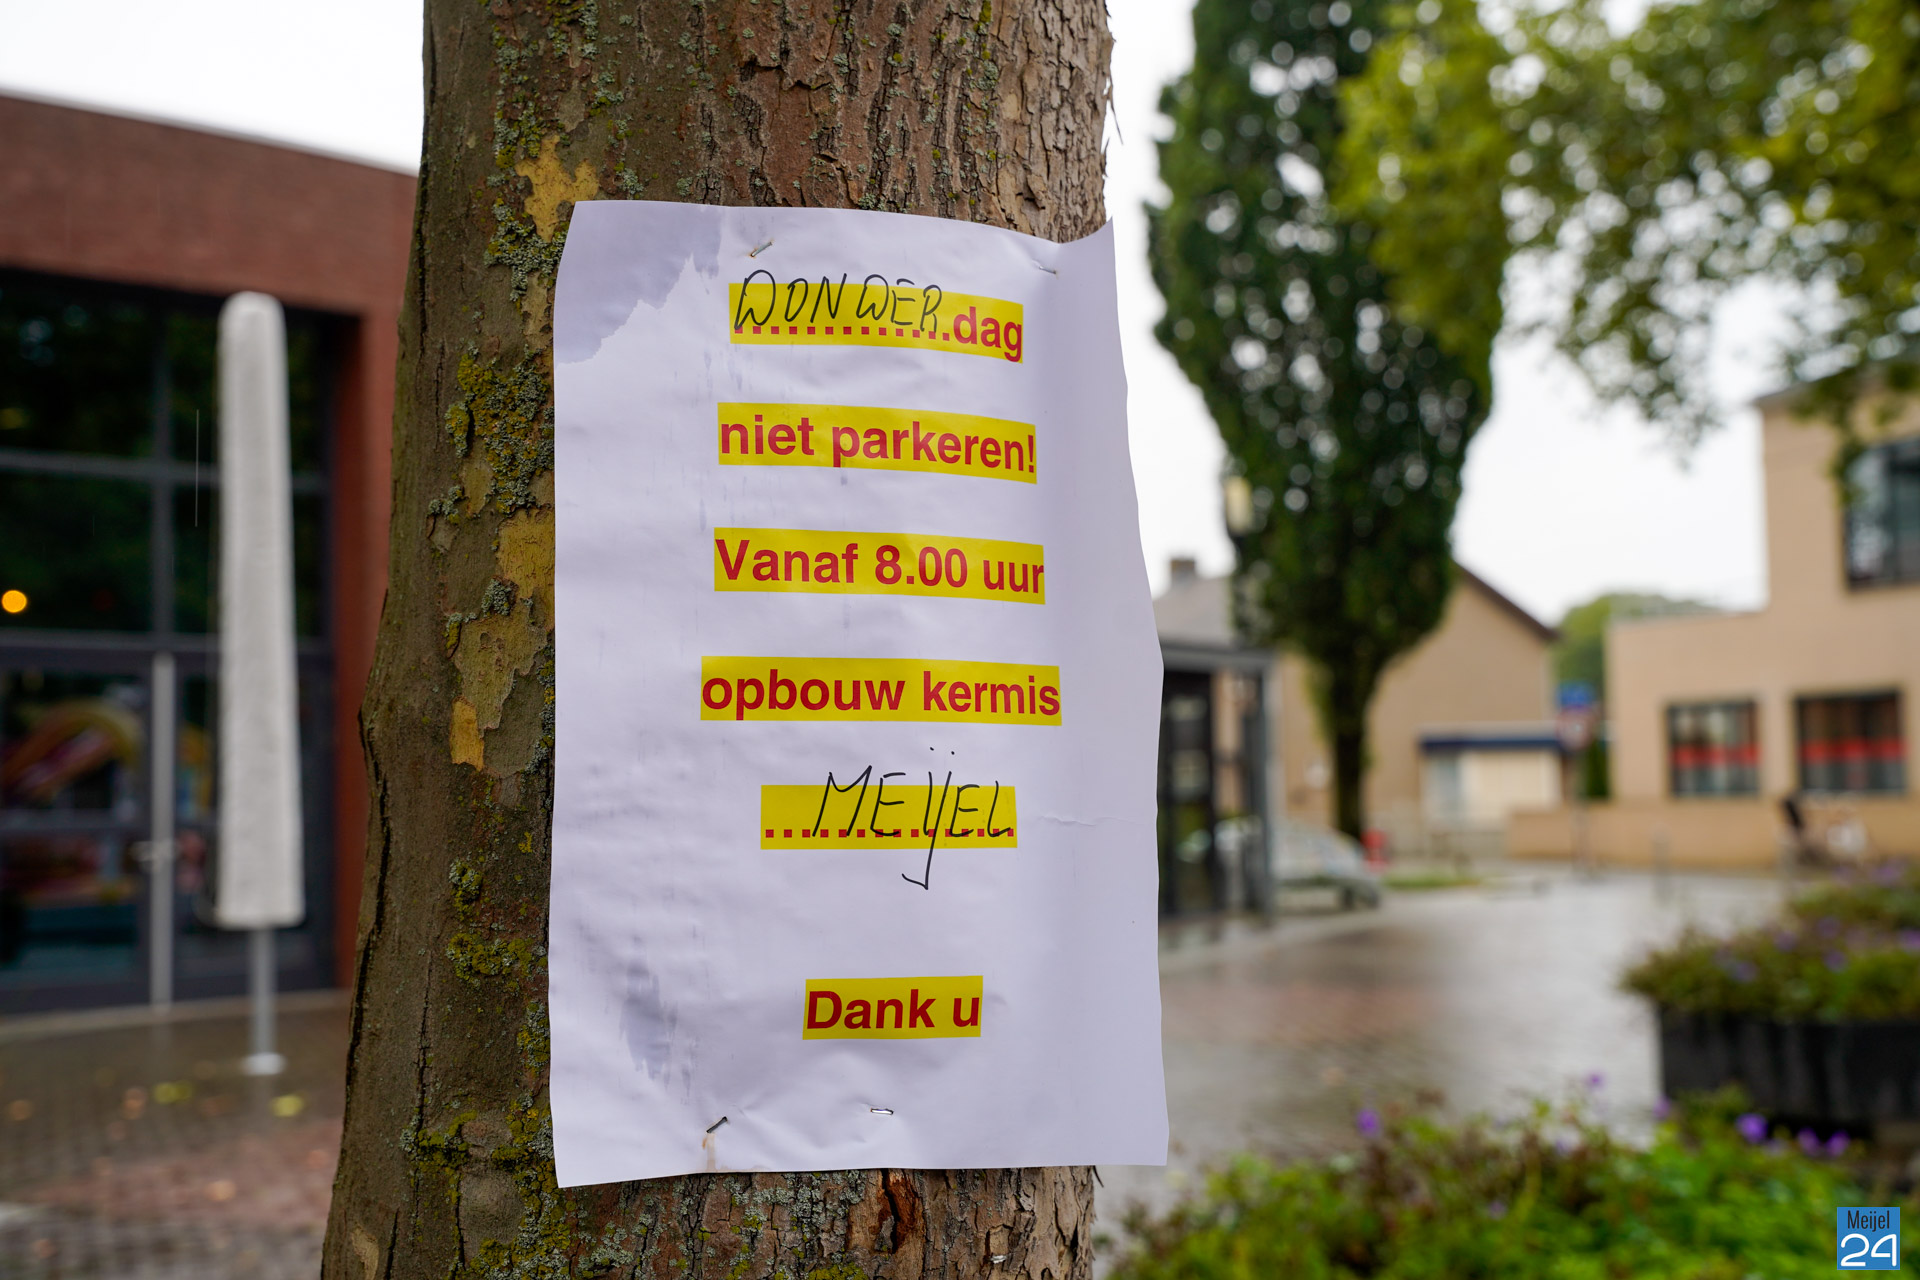 DONDER.dag
niet parkeren!
Vanaf 8.00 uur
opbouw kermis
...MEIJEL
Dank u
Meijel
24